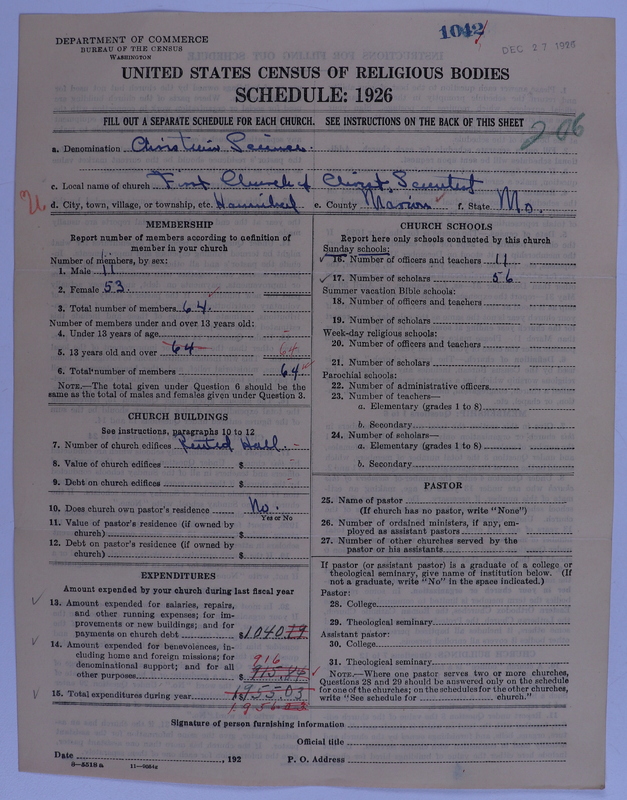 DEPARTMENT OF COMMERCE
BUREAU OF THE CENSUS
WASHINGTON
1042
DEC 27 1926
UNITED STATES CENSUS OF RELIGIOUS BODIES
SCHEDULE: 1926
FILL OUT A SEPARATE SCHEDULE FOR EACH CHURCH. SEE INSTRUCTIONS ON THE BACK OF THIS SHEET
206
a. Denomination Christian Science.
c. Local name of church First Church of Christ, Scientist
d. City, town, village, or township, etc. Hannibal e. County Marion f. State Mo.
MEMBERSHIP
Report number of members according to definition of
member in your church
Number of members, by sex:
1. Male 11
2. Female 53
3. Total number of members 64
Number of members under and over 13 years old:
4. Under 13 years of age -
5. 13 years old and over 64 64
6. Total number of members 64
NOTE.—The total given under Question 6 should be
same as the total of males and females given under Question 3.
CHURCH BUILDINGS
See instructions, paragraphs 10 to 12
7. Number of church edifices Rented Hall. -
8. Value of church edifices $
9. Debt on church edifices $
10. Does church own pastor's residence No.
Yes or No
11. Value of pastor's residence (if owned by
church) $
12. Debt on pastor's residence (if owned by
church) $
EXPENDITURES
Amount expended by your church during last fiscal year
13. Amount expended for salaries, repairs,
and other running expenses; for im-
provements or new buildings; and for
payments on church debt $1040.19
14. Amount expended for benevolences, in-
cluding home and foreign missions; for
denominational support; and for all 916
other purposes $ 915.84
15. Total expenditures during year 1955.03
1956
CHURCH SCHOOLS
Report here only schools conducted by this church
Sunday schools:
16. Number of officers and teachers 11
17. Number of scholars 56
Summer vacation Bible schools:
18. Number of officers and teachers
19. Number of scholars
Week-day religious schools:
20. Number of officers and teachers
21. Number of scholars
Parochial schools:
22. Number of administrative officers
23. Number of teachers—
a. Elementary (grades 1 to 8)
b. Secondary
24. Number of scholars—
a. Elementary (grades 1 to 8)
b. Secondary
PASTOR
25. Name of pastor
(If church has no pastor, write "None")
26. Number of ordained ministers, if any, em-
ployed as assistant pastors
27. Number of other churches served by the
pastor or his assistants
If pastor (or assistant pastor) is a graduate of a college or
theological seminary, give name of institution below. (If
not a graduate, write "No" in the space indicated.)
Pastor:
28. College
29. Theological seminary
Assistant pastor:
30. College
31. Theological seminary
NOTE.—Where one pastor serves two or more churches,
Questions 28 and 29 should be answered only on the schedule
for one of the churches; on the schedules for the other churches,
write "See schedule for church."
Signature of person furnishing information
Official title
Date , 192 P. O. Address
8—5518a 11—9254z